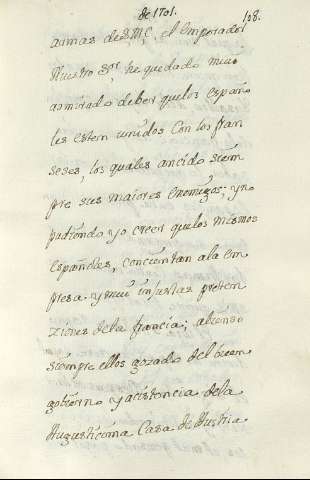 de 1701.
108.
armas de S.M.C. el Emperador
Nuestro Sor, he quedado mui
admirado de ber que los españo
les esten unidos con los fran
seses, los quales an cido siem
pre sus maiores enemigos; y no
pudiendo yo creer que los mismos
españoles, concientan a la em
presa y mui injustas preten
ziones de la francia; abiendo
siempre ellos gozado del buen
gobierno y acistencia de la
Augusticima Casa de Austria